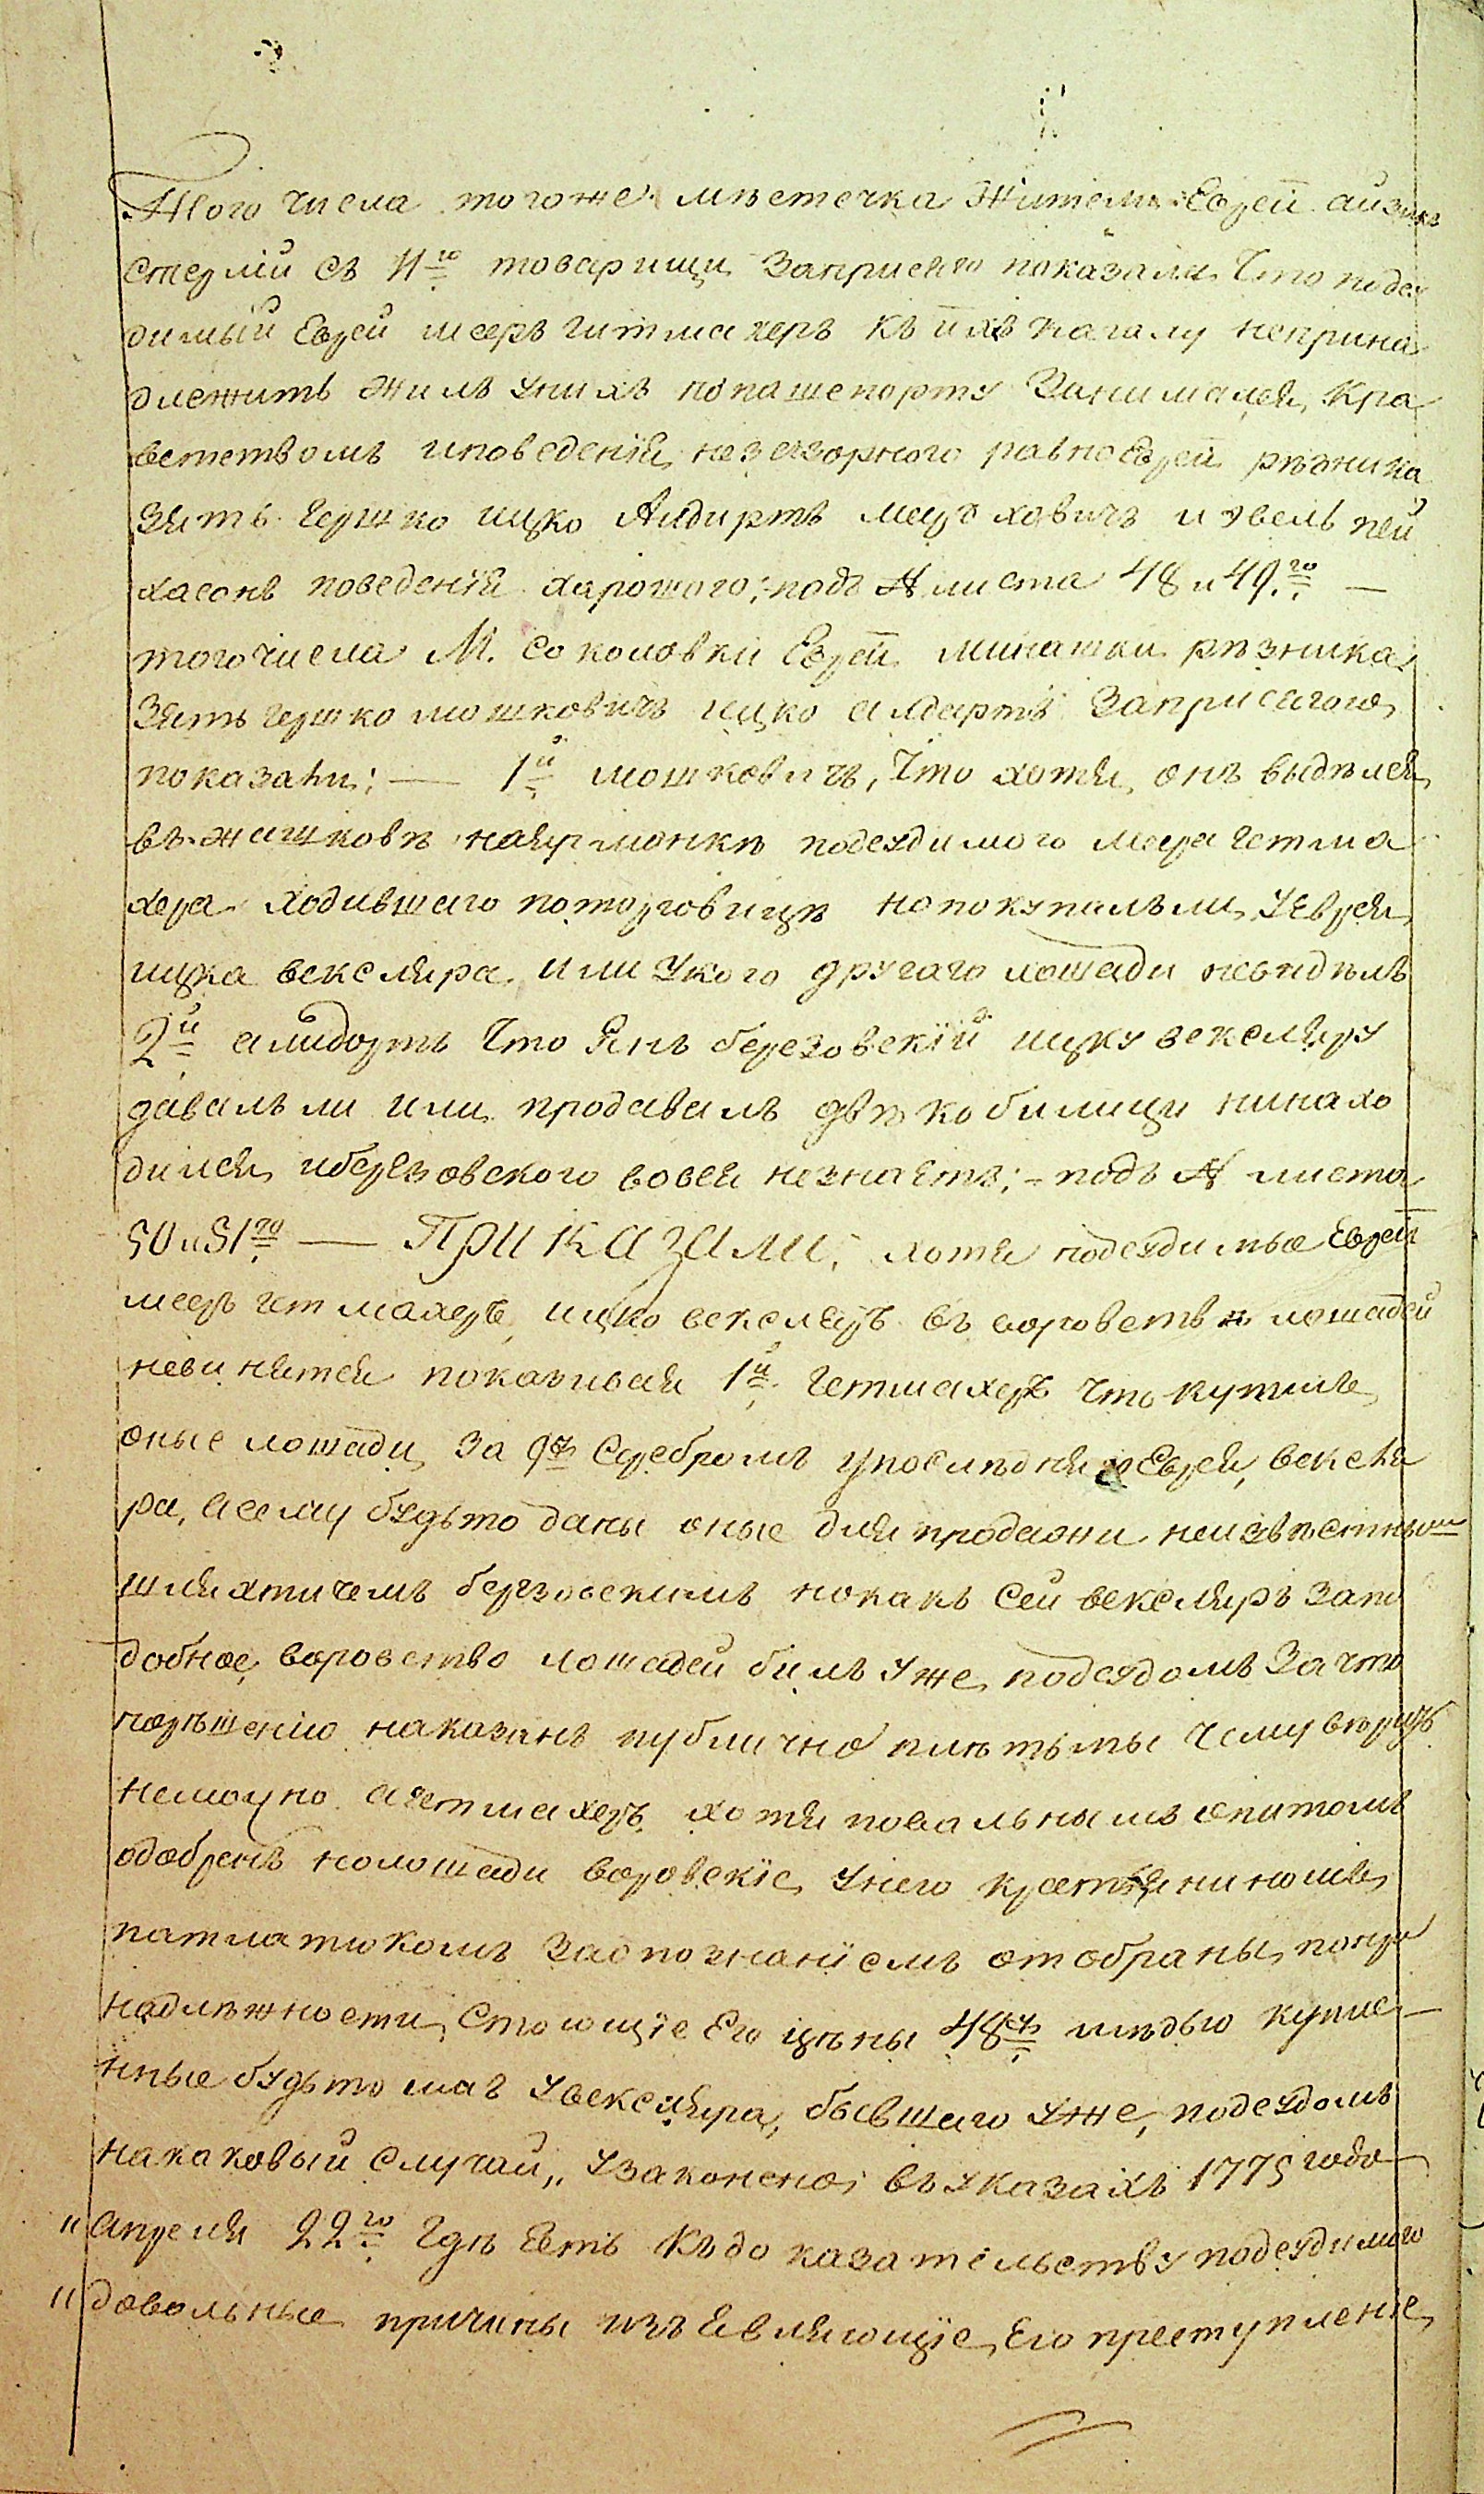 Того числа тогоже мѣстечка Жители Евреи айзикъ
стерлiй съ 11го товарищи заприсягою показали что подсу
димый Еврей мееръ гитмахеръ къ ихъ кагалу неприна
длежитъ жилъ унихъ попашепорту Занимался кра
вствомъ иповеденiя незазорного равно Еврей рѣзника
зять гершко ицко Алдиртъ меерховичъ и эвель пей
хасонъ поведенiя харошого; подъ № листа 48 и 49го —
того числа М. Соколовки Евреи минашки рѣзника
Зять гершко мошковичъ ицко алдартъ Заприсягою
показали: — 1й мошковичъ, что хотя онъ видѣлся
въ жашковѣ наярмонкѣ подсудимого меера гетма
хера ходившаго поторговицѣ нопокупалъли уеврея
ицка векслира или укого другаго лошади невидѣлъ
2й алидортъ что Янъ березовскiй ицку векслиру
давалъ ли или продавалъ двѣ кобилици ненахо
дился иберезовского вовся незнаетъ; — подъ № листа
50 и 51го — Приказали: хотя подсудимые Евреи
мееръ гетмахеръ ицко векслеръ въ воровствѣ лошадей
невинятся показивая 1й гетмахеръ что купилъ
оные лошади за 9р серебромъ упослѣдняго Еврея, векселя
ра, а сему будьто даны оные для продажи неизвѣстнымъ
шляхтичемъ березовскимъ нокакъ сей векслиръ запо
добное воровство лошадей билъ уже подсудомъ За что
порѣшенiю наказанъ публично плѣтьмы чему вѣрить
немочно а гетмахеръ хотя повальнымъ опитомъ
одобренъ нолошади воровскiе у него крестьяниномъ
патлатюкомъ заспознанiемъ отобраны попри
надлѣжности стоющiе Его цѣны 48р мѣдью купле—
нные будьто мач увекслира, бывшаго уже подсудомъ
накаковый случай„ узаконено въ указахъ 1775 года
„апреля 22го гдѣ есть къ доказательству подсудимого
„довольные причины изъявляющiе Его преступленiе